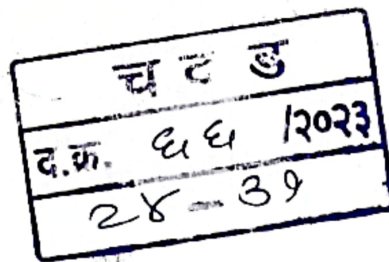 च ट ड
द.क्र. ६६ /२०२३
२४ - ३१